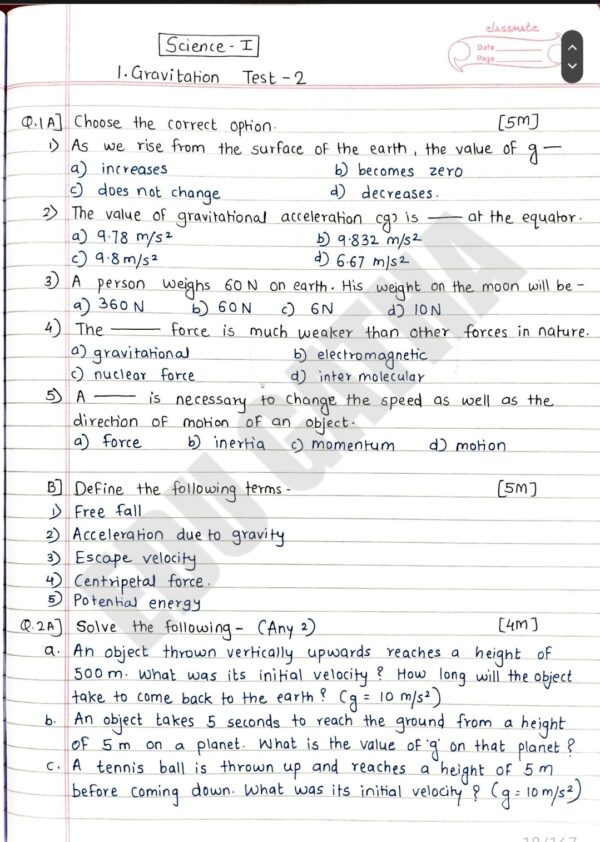 classmate
Date
Page
Science - I
1. Gravitation Test - 2
Q.1A] Choose the correct option. [5M]
1) As we rise from the surface of the earth, the value of g —
a) increases b) becomes zero
c) does not change d) decreases.
2) The value of gravitational acceleration (g) is —— at the equator.
a) 9.78 m/s² b) 9.832 m/s²
c) 9.8 m/s² d) 6.67 m/s²
3) A person weighs 60 N on earth. His weight on the moon will be -
a) 360 N b) 60 N c) 6N d) 10N
4) The —— force is much weaker than other forces in nature.
a) gravitational b) electromagnetic
c) nuclear force d) inter molecular
5) A —— is necessary to change the speed as well as the
direction of motion of an object.
a) force b) inertia c) momentum d) motion
B] Define the following terms - [5M]
1) Free fall
2) Acceleration due to gravity
3) Escape velocity
4) Centripetal force.
5) Potential energy
Q.2A] Solve the following - (Any 2) [4M]
a. An object thrown vertically upwards reaches a height of
500 m. What was its initial velocity? How long will the object
take to come back to the earth? (g = 10 m/s²)
b. An object takes 5 seconds to reach the ground from a height
of 5 m on a planet. What is the value of 'g' on that planet?
c. A tennis ball is thrown up and reaches a height of 5 m
before coming down. What was its initial velocity? (g = 10 m/s²)